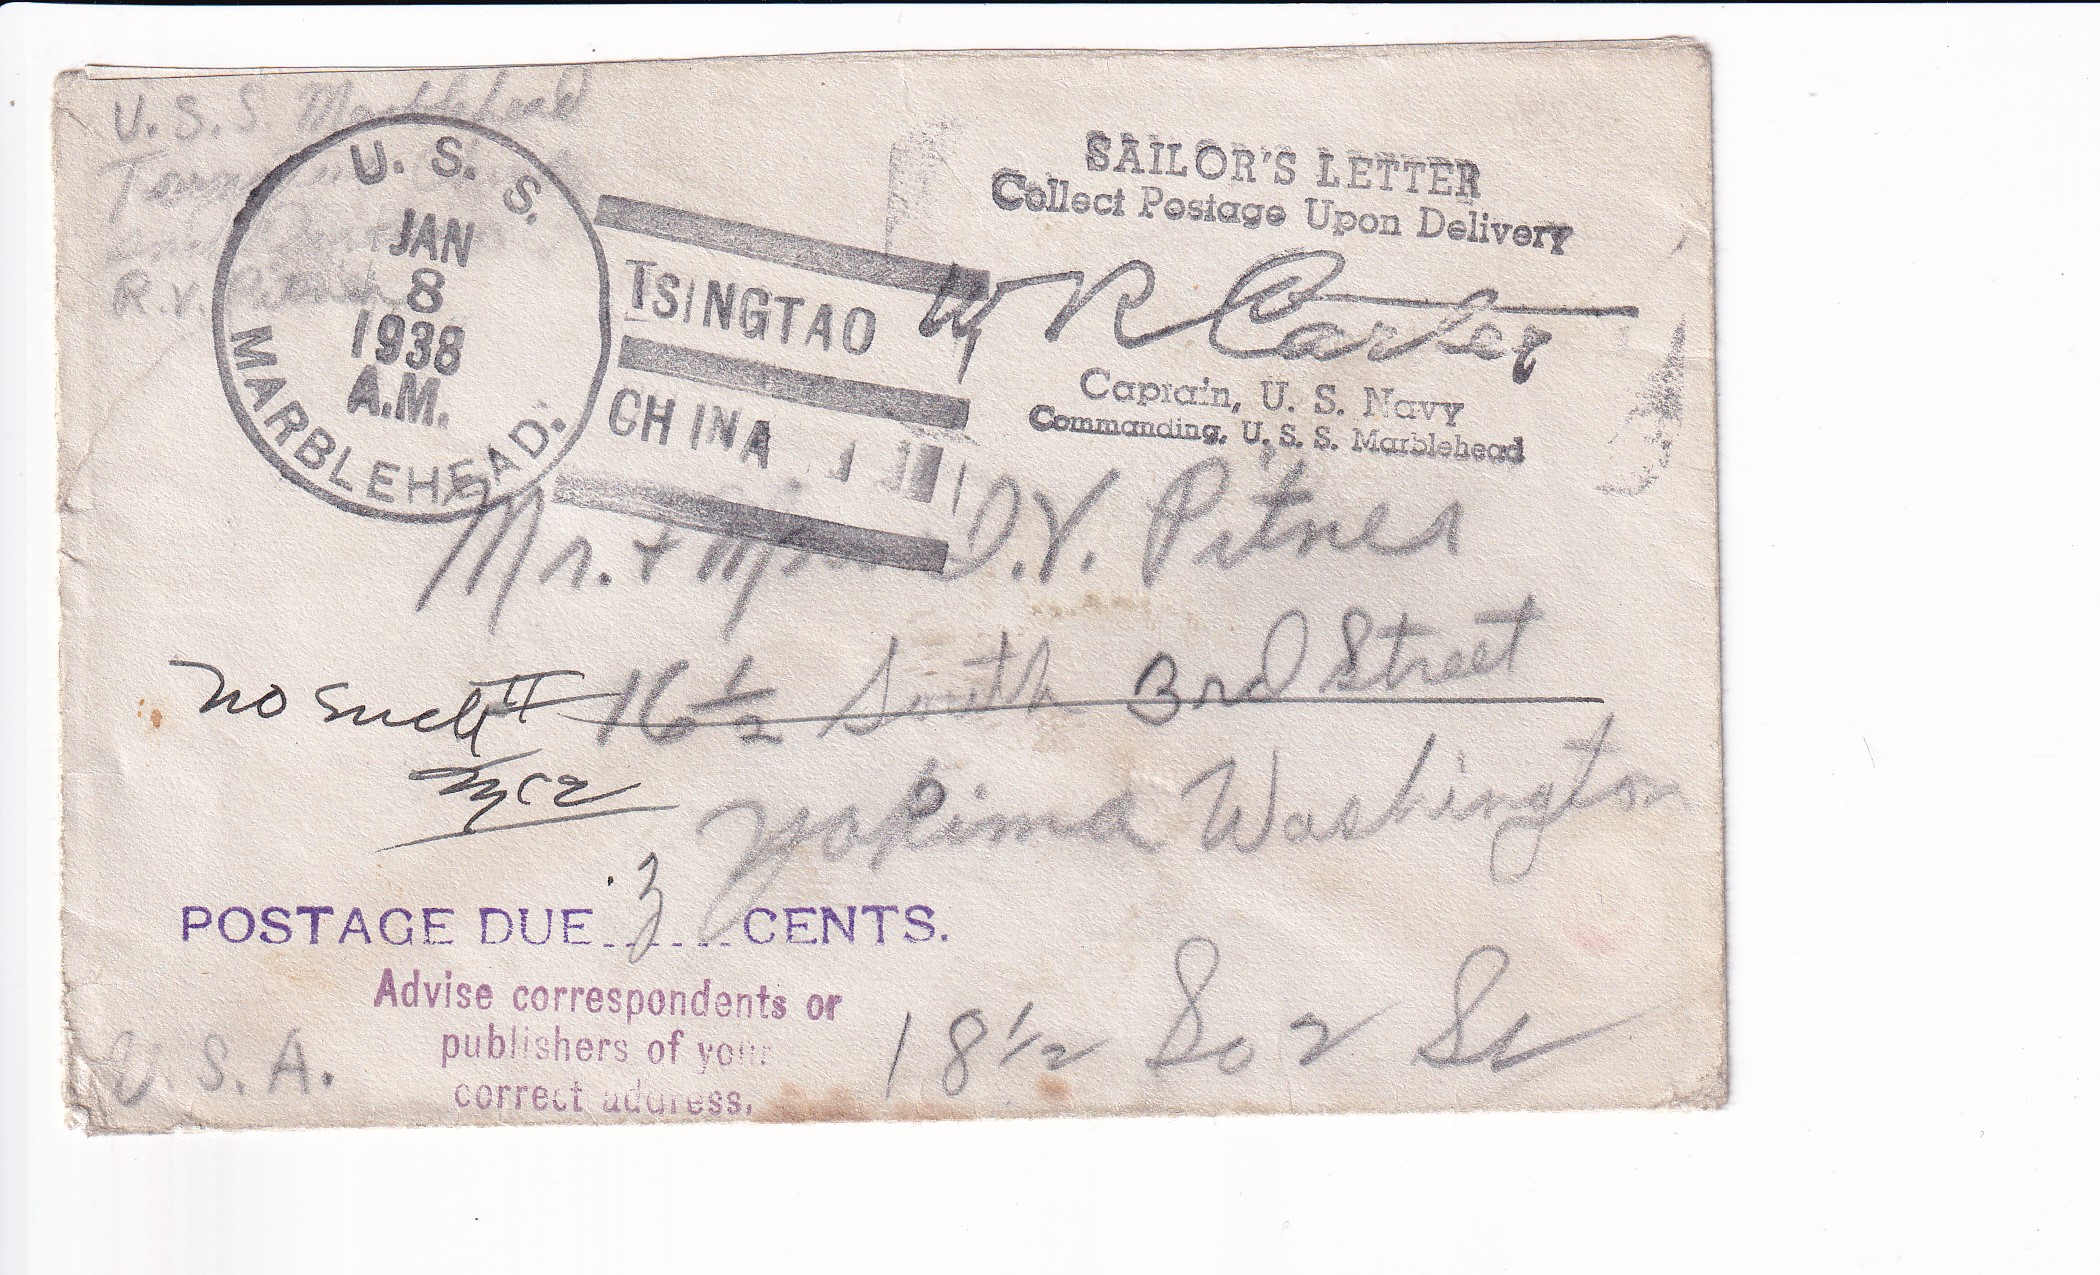 U. S. S. Marblehead
R. V.
U. S. S.
MARBLEHEAD.
JAN
8
1938
A.M.
TSINGTAO
CHINA
SAILOR'S LETTER
Collect Postage Upon Delivery
W R Carter
Captain, U. S. Navy
Commanding, U. S. S. Marblehead
Mr. + Mrs. D. V. Pitner
no such #
16 1/2 South 3rd Street
Yakima Washington
POSTAGE DUE 3 CENTS.
Advise correspondents or
publishers of your
correct address.
18 1/2 So 2 St
U. S. A.